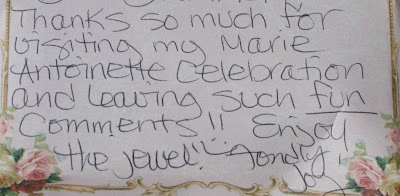 Thanks so much for
visiting my Marie
Antoinette Celebration
and leaving such fun
Comments!! Enjoy
the jewel! Fondly,
Joy